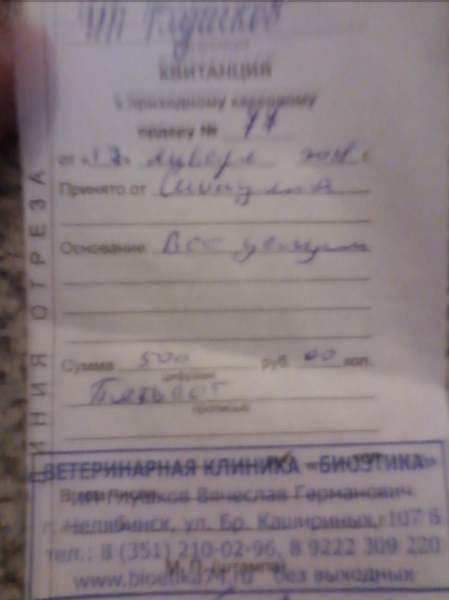 ИП Глушков
КВИТАНЦИЯ
к приходному кассовому
ордеру № 77
от «17» января г.
Принято от
Основание Вет услуги
Сумма 500 руб. 00 коп.
цифрами
Пятьсот
прописью
ЛИНИЯ ОТРЕЗА
ВЕТЕРИНАРНАЯ КЛИНИКА «БИОЭТИКА»
ИП Глушков Вячеслав Германович
г. Челябинск, ул. Бр. Кашириных, 107 Б
тел.: 8 (351) 210-02-96, 8 9222 309 220
М.П. (штампа)
www.bioetika74.ru без выходных